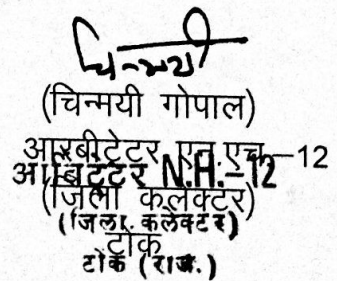 चिन्मयी
(चिन्मयी गोपाल)
आरबीट्रेटर एन.एच.-12
आर्बिट्रेटर N.H.-12
(जिला कलेक्टर)
(जिला कलेक्टर)
टोंक
टोंक (राज.)